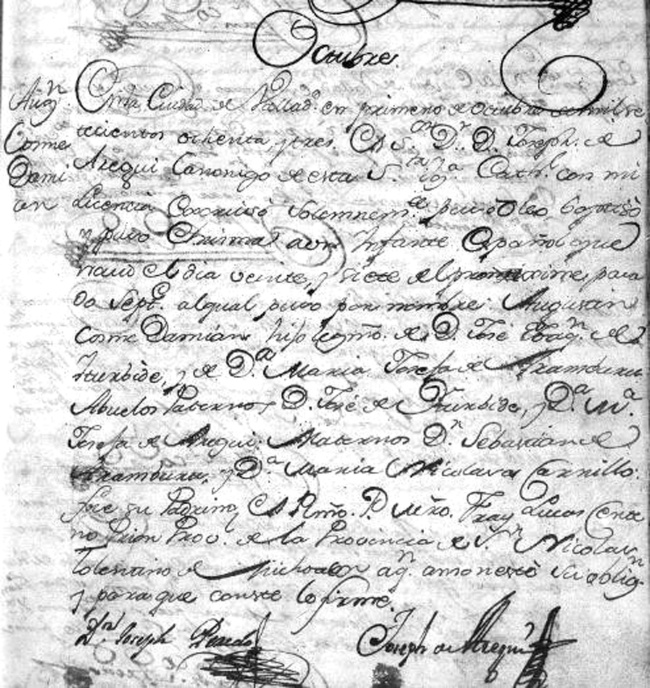 Octubre
Aug.n Cosme Damian
En la Ciudad de Vallad. en primero de Octubre de mil se
tecientos ochenta, y tres. El S.or D.r D. Joseph. de
Aregui Canonigo de esta S.ta Ig.a Cathl. con mi
Licencia Exorcisó solemnem.te puso Oleo, baptisó
y puso Chrisma a un Infante Español que
nació el dia veinte, y siete del proximo pasa
do Sept.e al qual puso por nombre Augustin
Cosme Damian hijo legmo. de D. José Joaq.n de
Yturbide, y de D.a Maria Josefa de Aramburu
Abuelos Paternos D. José de Yturbide, y D.a M.a
Josefa de Aregui: Maternos D.n Sebastian de
Aramburu, y D.a Maria Nicolasa Carrillo.
fue su Padrino El Rmo. P. Mro. Fray Lucas Cente
no Prior Prov. de la Provincia de S.n Nicolas
Tolentino de Michoacan aq.n amonestó su oblig.n
y para que conste lo firmé.
Joseph Peredo Joseph de Aregui